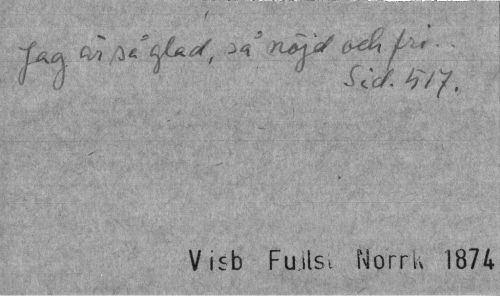 Jag är så glad, så nöjd och fri...
Sid. 517.
Visb Fullst Norrk 1874